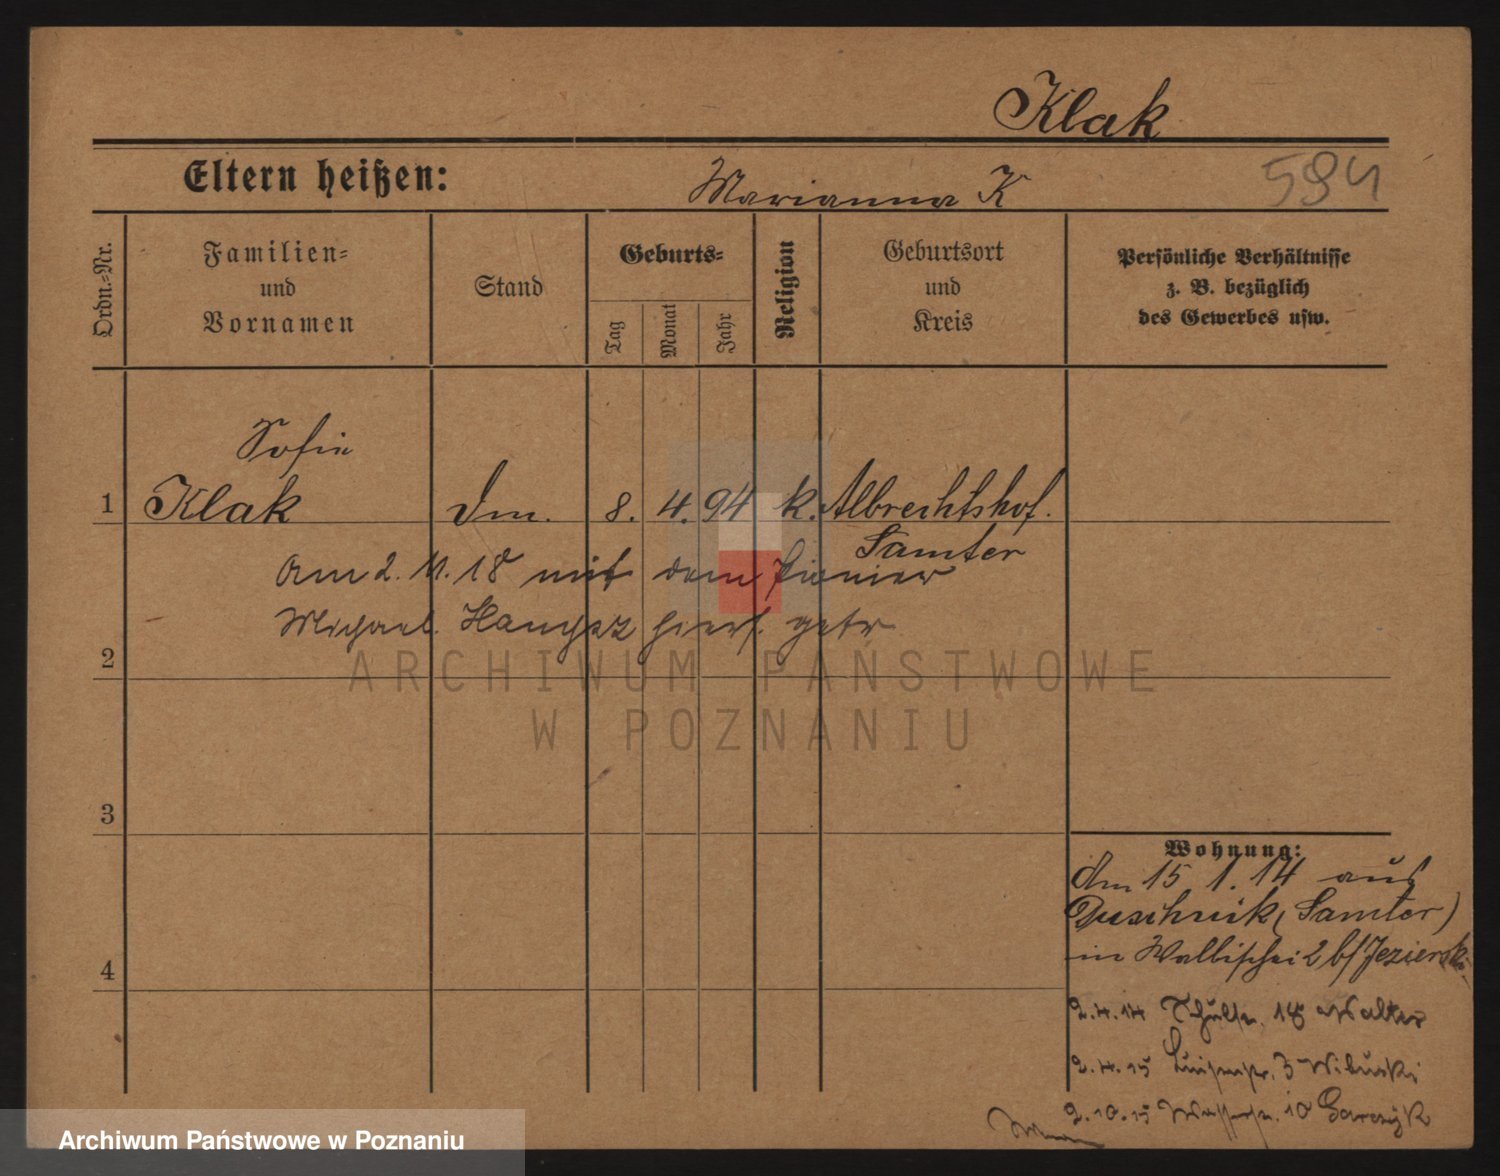 Klak
Eltern heißen: Marianna K 594
Ordn.=Nr.
Familien=
und
Vornamen
Stand
Geburts=
Tag
Monat
Jahr
Religion
Geburtsort
und
Kreis
Persönliche Verhältnisse
z. B. bezüglich
des Gewerbes usw.
Sofie
1 Klak Dm. 8. 4. 94 k. Albrechtshof.
Samter
Am 2. 11. 18 mit dem Pionier
Michael hiers. getr
2
ARCHIWUM PAŃSTWOWE
W POZNANIU
3
Wohnung:
Am 15 1. 14 aus
Duschnik (Samter)
in Wallischei 2 b/ Jezierski
4
2.4.14 18 Walter
2.4.15 Luisenstr. 3
2.10.15 10
Archiwum Państwowe w Poznaniu